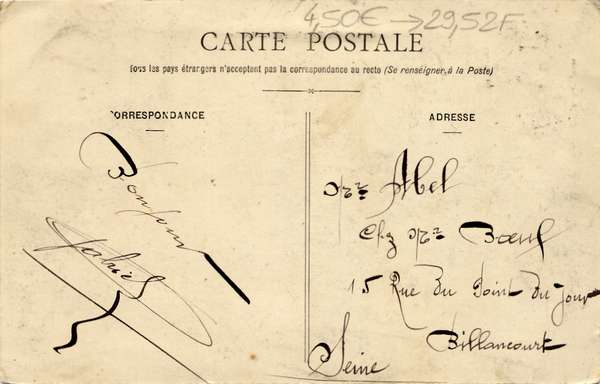 4,50€ → 29,52F
CARTE POSTALE
Tous les pays étrangers n'acceptent pas la correspondance au recto (Se renseigner, à la Poste)
CORRESPONDANCE
Bonjour
Gabriel
ADRESSE
Mr Abel
Chez Mr Bœuf
15 Rue Du Point Du Jour
Billancourt
Seine